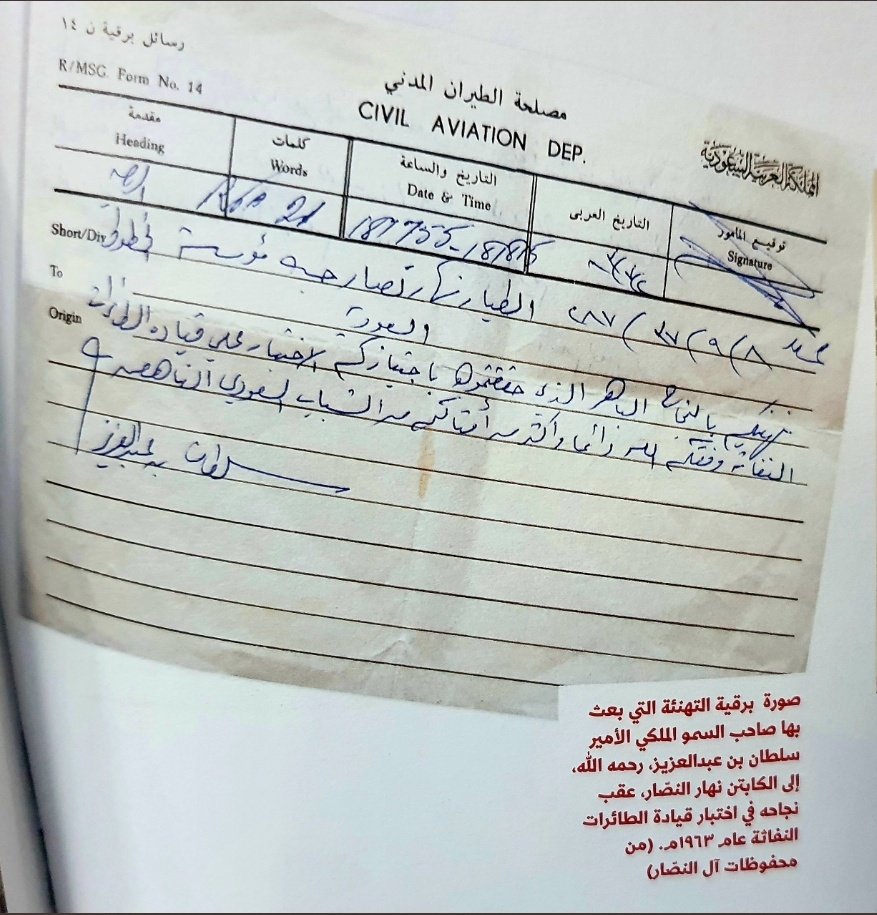 رسائل برقية ن ١٤
R/MSG. Form No. 14
مصلحة الطيران المدني
CIVIL AVIATION DEP.
المملكة العربية السعودية
مقدمة
Heading
كلمات
Words
التاريخ والساعة
Date & Time
التاريخ العربى
توقيع المأمور
Signature
21
Short/Div
To
Origin
٢٨٧ / ٢٧ / ٩ / ٨
الطيار نهار نصار جده مؤسسة الخطوط
السعودية
نهنئكم بالنجاح الباهر الذي حققتموه باجتيازكم الاختبار على قيادة الطائرات
النفاثة وفقكم الله دائما وأكثر من أمثالكم من الشباب السعودي الناهض
سلطان بن عبدالعزيز
صورة برقية التهنئة التي بعث
بها صاحب السمو الملكي الأمير
سلطان بن عبدالعزيز، رحمه الله،
إلى الكابتن نهار النصّار، عقب
نجاحه في اختبار قيادة الطائرات
النفاثة عام ١٩٦٣م. (من
محفوظات آل النصّار)